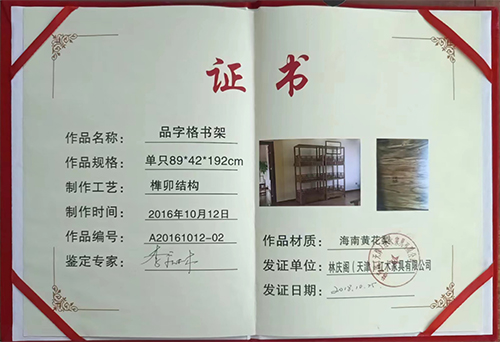 证书
作品名称： 品字格书架
作品规格： 单只89*42*192cm
制作工艺： 榫卯结构
制作时间： 2016年10月12日
作品编号： A20161012-02
鉴定专家：
作品材质： 海南黄花梨
发证单位： 林庆阁（天津）红木家具有限公司
发证日期：